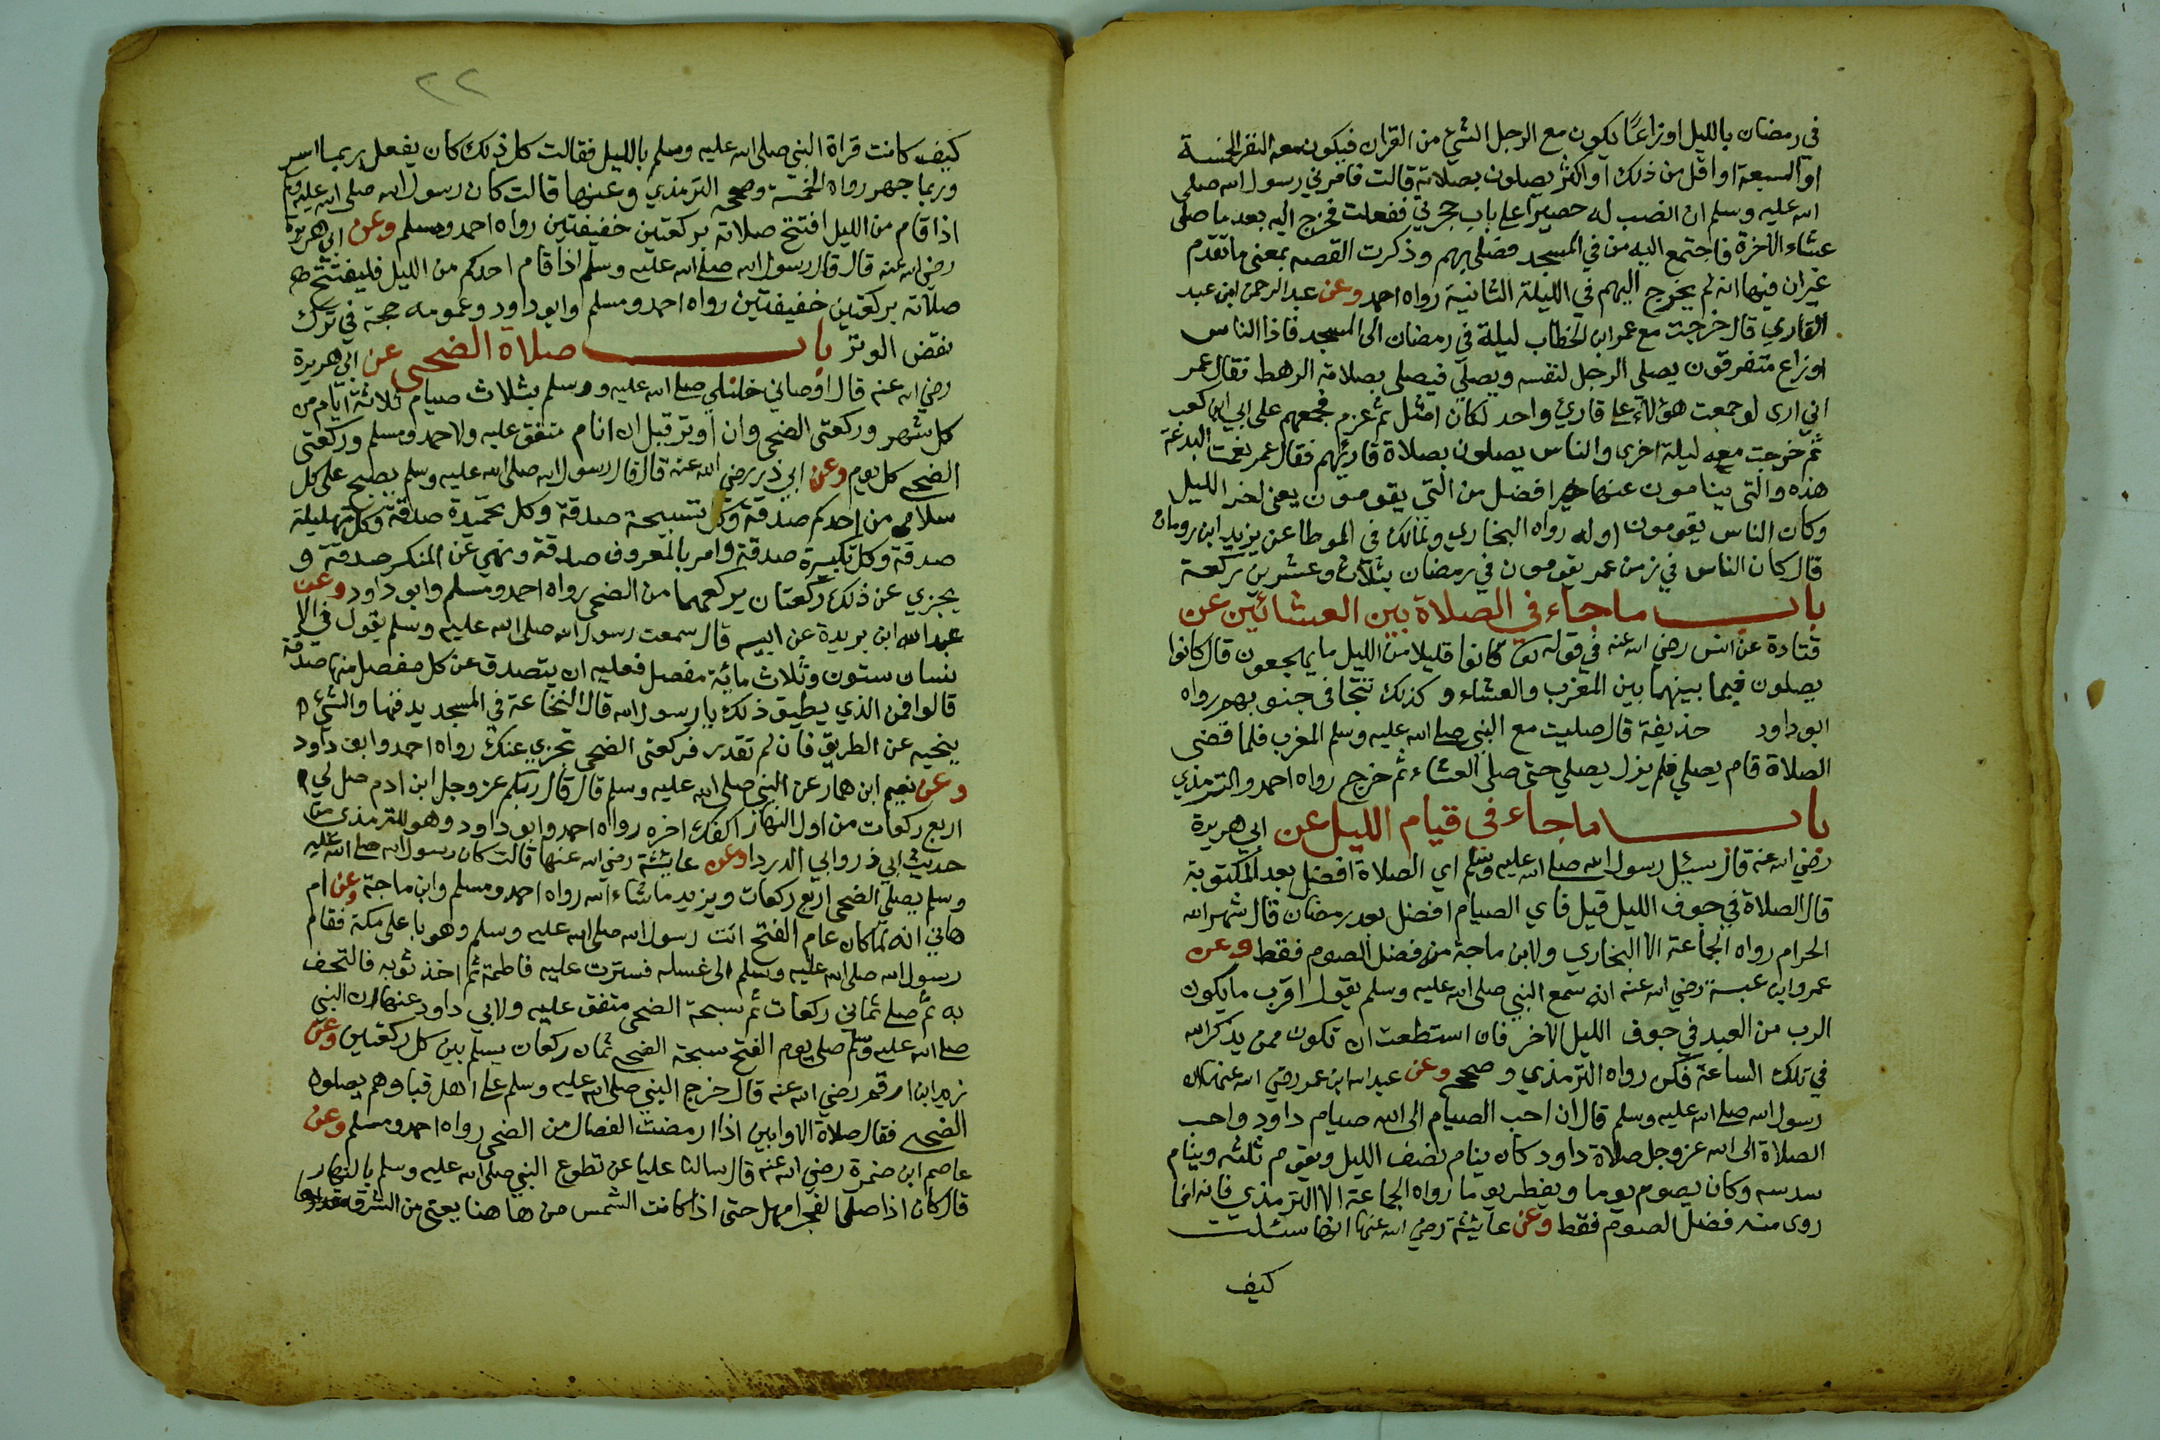 في رمضان بالليل اوزاعًا يكون مع الرجل الشيئ من القران فيكون معه النفر الخمسة
او السبعة او اقل من ذلك او اكثر يصلون بصلاته قالت فامرني رسول الله صلى
الله عليه وسلم ان انصب له حصيرا على باب حجرتي ففعلت فخرج اليه بعد ما صلى
عشاء الاخرة فاجتمع اليه من في المسجد فصلى بهم وذكرت القصه بمعنى ما تقدم
غيران فيها انه لم يخرج اليهم في الليلة الثانية رواه احمد وعن عبد الرحمن ابن عبد
القاري قال خرجت مع عمر ابن الخطاب ليلة في رمضان الى المسجد فاذا الناس
اوزاع متفرقون يصلي الرجل لنفسه ويصلي فيصلي بصلاته الرهط فقال عمر
اني ارى لو جمعت هؤلاء على قارئ واحد لكان امثل ثم عزم فجمعهم على ابي ابن كعب
ثم خرجت معه ليلة اخرى والناس يصلون بصلاة قارئهم فقال عمر نعمت البدعة
هذه والتي ينامون عنها افضل من التي يقومون يعني اخر الليل
وكان الناس يقومون اوله رواه البخاري ولمالك في الموطا عن يزيد ابن رومان
قال كان الناس في زمن عمر يقومون في رمضان بثلاث وعشرين ركعة
باب ماجاء في الصلاة بين العشائين عن
قتادة عن انس رضي الله عنه في قوله تع كانوا قليلا من الليل ما يهجعون قال كانوا
يصلون فيما بينهما بين المغرب والعشاء وكذلك تتجافى جنوبهم رواه
ابو داود حذيفة قال صليت مع النبي صلى الله عليه وسلم المغرب فلما قضى
الصلاة قام يصلي فلم يزل يصلي حتى صلى العشاء ثم خرج رواه احمد والترمذي
باب ماجاء في قيام الليل عن ابي هريرة
رضي الله عنه قال سئيل رسول الله صلى الله عليه وسلم اي الصلاة افضل بعد المكتوبة
قال الصلاة في جوف الليل قيل فاي الصيام افضل بعد رمضان قال شهر الله
الحرام رواه الجماعة الا البخاري ولابن ماجة من فضل الصوم فقط وعن
عمرو ابن عبسة رضي الله عنه انه سمع النبي صلى الله عليه وسلم يقول اقرب ما يكون
الرب من العبد في جوف الليل الاخر فان استطعت ان تكون ممن يذكر الله
في تلك الساعة فكن رواه الترمذي وصححه وعن عبد الله ابن عمر رضي الله عنهما ان
رسول الله صلى الله عليه وسلم قال ان احب الصيام الى الله صيام داود واحب
الصلاة الى الله عز وجل صلاة داود كان ينام نصف الليل ويقوم ثلثه وينام
سدسه وكان يصوم يوما ويفطر يوما رواه الجماعة الا الترمذي فانه انما
روى منه فضل الصوم فقط وعن عايشة رضي الله عنها انها سئلت
كيف
٢٢
كيف كانت قراة النبي صلى الله عليه وسلم بالليل فقالت كل ذلك كان يفعل ربما اسر
وربما جهر رواه الخمسة وصححه الترمذي وعنها قالت كان رسول الله صلى الله عليه وسلم
اذا قام من الليل افتتح صلاته بركعتين خفيفتين رواه احمد ومسلم وعن ابي هريرة
رضي الله عنه قال قال رسول الله صلى الله عليه وسلم اذا قام احدكم من الليل فليفتتح
صلاته بركعتين خفيفتين رواه احمد ومسلم وابو داود وعمومه حجة في ترك
نقض الوتر باب صلاة الضحى عن ابي هريرة
رضي الله عنه قال اوصاني خليلي صلى الله عليه وسلم بثلاث صيام ثلاثة ايام من
كل شهر وركعتى الضحى وان اوتر قبل ان انام متفق عليه ولاحمد ومسلم وركعتى
الضحى كل يوم وعن ابي ذر رضي الله عنه قال قال رسول الله صلى الله عليه وسلم يصبح على كل
سلامى من احدكم صدقة وكل تسبيحة صدقة وكل تحميدة صدقة وكل تهليلة
صدقة وكل تكبيرة صدقة وامر بالمعروف صدقة ونهي عن المنكر صدقة و
يجزي عن ذلك ركعتان يركعهما من الضحى رواه احمد ومسلم وابو داود وعن
عبد الله ابن بريدة عن ابيه قال سمعت رسول الله صلى الله عليه وسلم يقول في الا
نسان ستون وثلاث مائة مفصل فعليه ان يتصدق عن كل مفصل منها صدقة
قالوا فمن الذي يطيق ذلك يا رسول الله قال النخاعة في المسجد يدفنها والشئ
ينحيه عن الطريق فان لم تقدر فركعتى الضحى تجزي عنك رواه احمد وابو داود
وعن نعيم ابن همار عن النبي صلى الله عليه وسلم قال قال ربكم عز وجل ابن ادم صل لي
اربع ركعات من اول النهار اكفك اخره رواه احمد وابو داود وهو للترمذي من
حديث ابي ذر وابي الدرداء وعن عايشة رضي الله عنها قالت كان رسول الله صلى الله عليه
وسلم يصلي الضحى اربع ركعات ويزيد ماشاء الله رواه احمد ومسلم وابن ماجة وعن ام
هاني انه لما كان عام الفتح اتت رسول الله صلى الله عليه وسلم وهو باعلى مكة فقام
رسول الله صلى الله عليه وسلم الى غسله فسترت عليه فاطمة ثم اخذ ثوبه فالتحف
به ثم صلى ثماني ركعات ثم سبحة الضحى متفق عليه ولابي داود عنها ان النبي
صلى الله عليه وسلم صلى يوم الفتح سبحة الضحى ثمان ركعات يسلم بين كل ركعتين وعن
زيد ابن ارقم رضي الله عنه قال خرج النبي صلى الله عليه وسلم على اهل قبا وهم يصلون
الضحى فقال صلاة الاوابين اذا ارمضت الفصال من الضحى رواه احمد ومسلم وعن
عاصم ابن ضمرة رضي الله عنه قال سالنا عليا عن تطوع النبي صلى الله عليه وسلم بالنهار
قال كان اذا صلى الفجر امهل حتى اذا كانت الشمس من ها هنا يعني من الشرق مقدارها